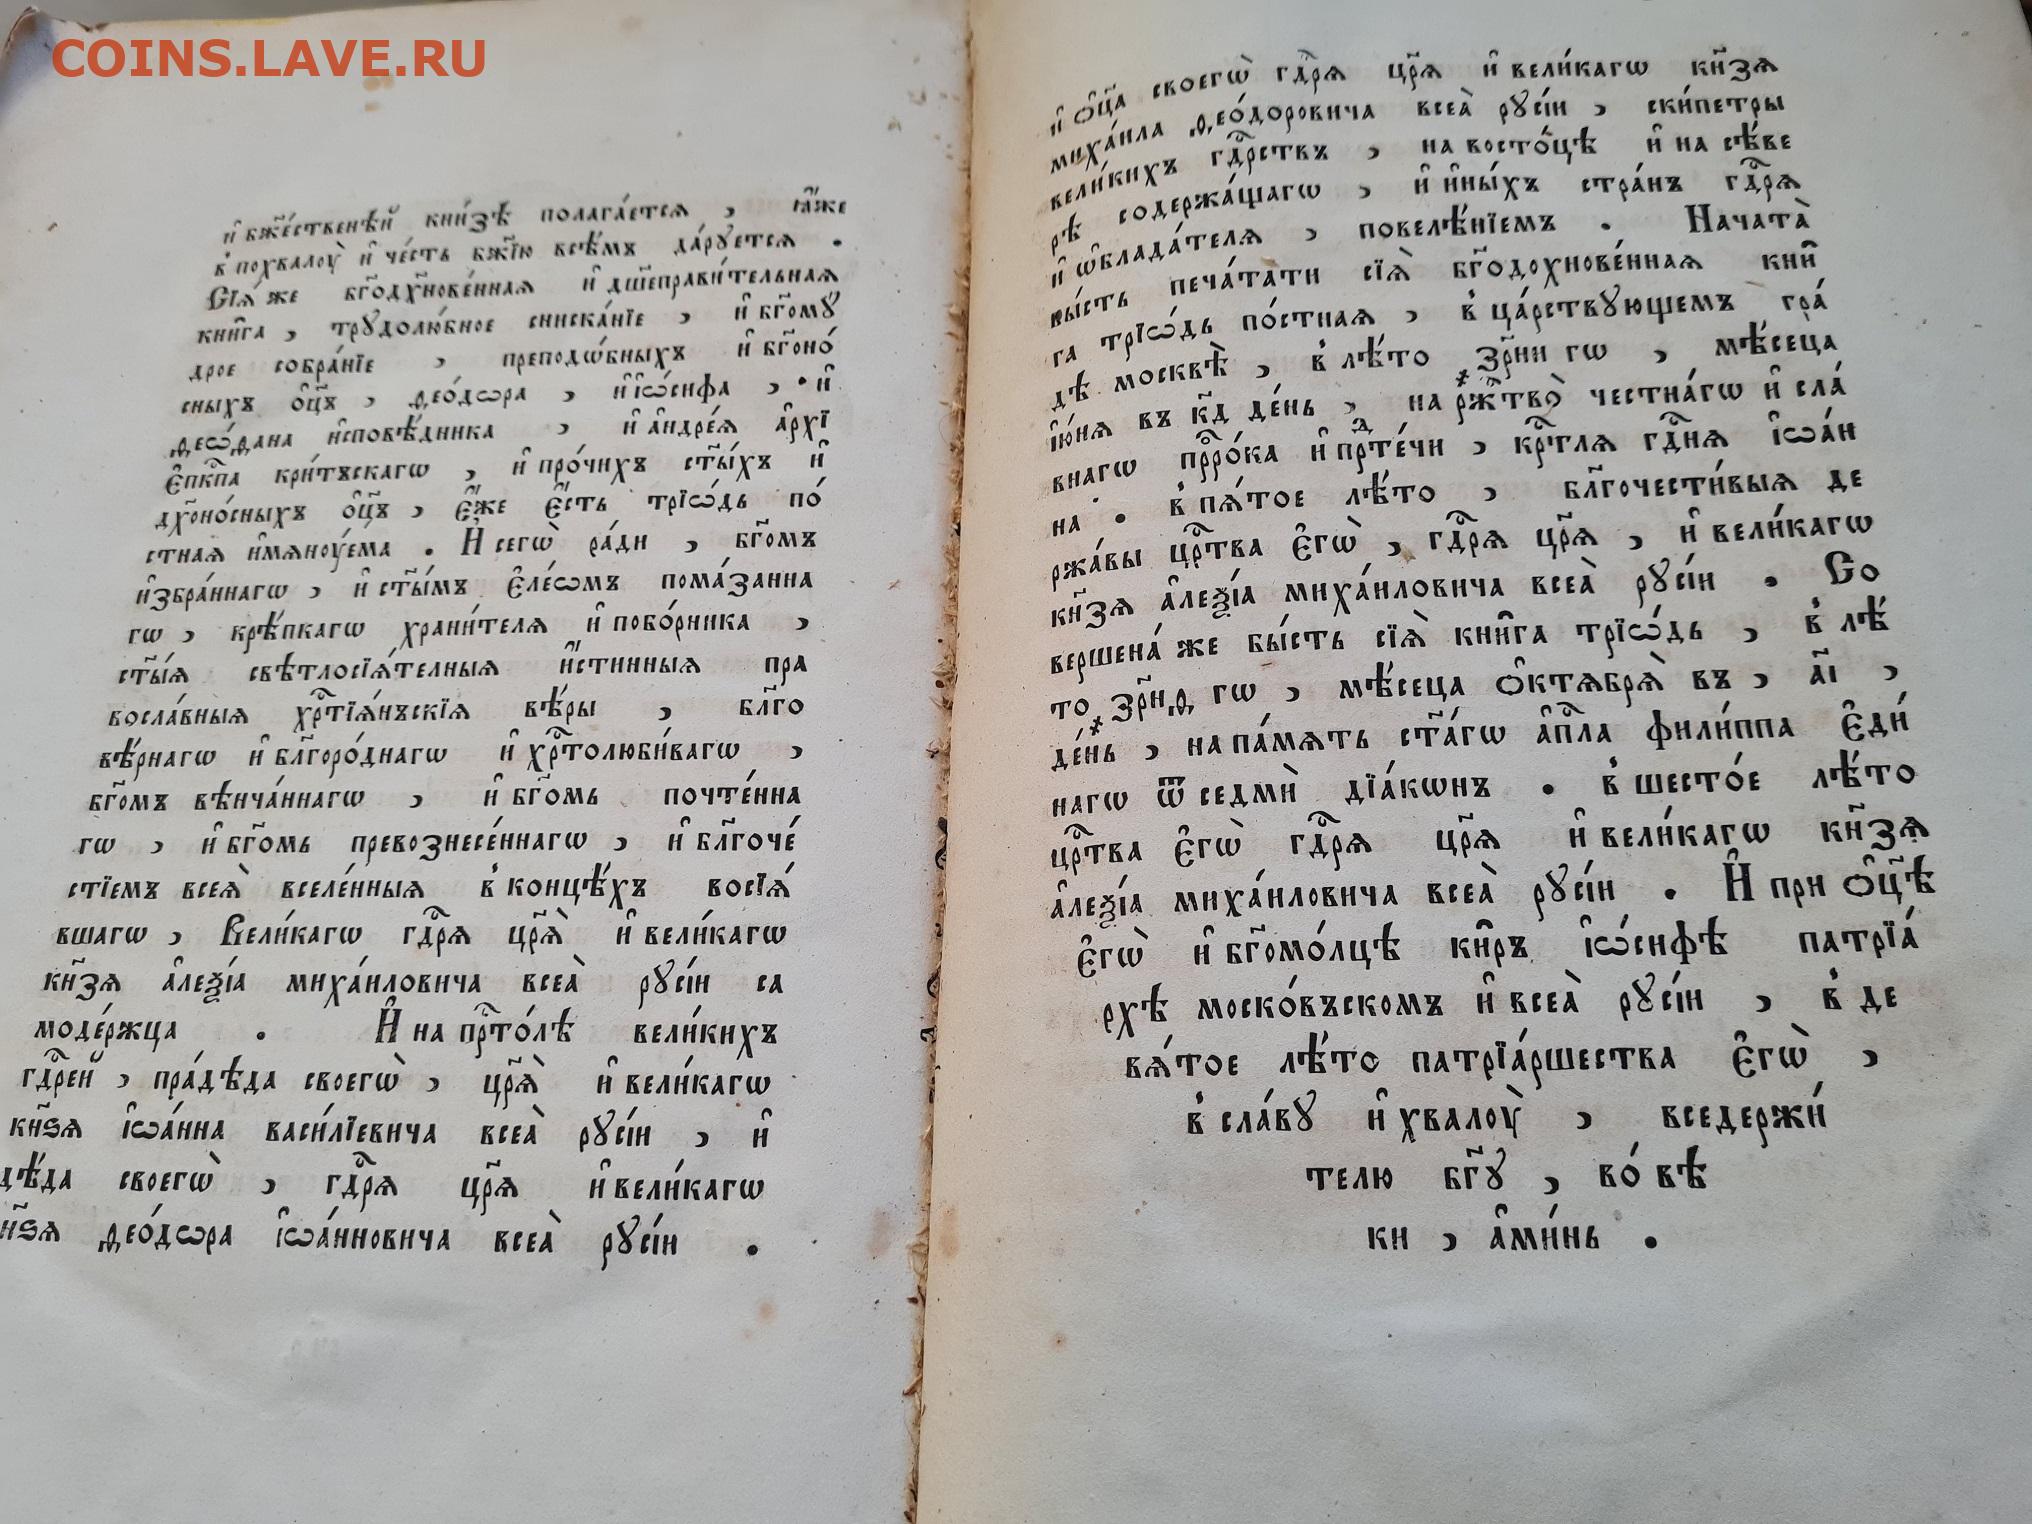 COINS.LAVE.RU
и҆ бж҃е́ственѣй кни́зѣ полага́ется , ꙗ҆́же
в҆ похвалоу̀ и҆ че́сть бж҃їю всѣ́мъ да́рꙋется .
Сїѧ́ же бг҃одх҃нове́нная и҆ дш҃еправи́тельная
кни҃га , трꙋдолю́бное сниска́нїе , и҆ бг҃омꙋ́
дрое собра́нїе , преподѡ́бныхъ и҆ бг҃оно́
сныхъ ѻ҆ц҃ъ , ѳео́дѡра , и҆ і҆ѡ́сифа , и҆
ѳеѡ́ѳана и҆сповѣ́дника , и҆ а҆ндре́ѧ а҆рхї
є҆пк҃па кри́тъскагѡ , и҆ про́чихъ ст҃ы́хъ и҆
дх҃оно́сныхъ ѻ҆ц҃ъ , є҆́же є҆́сть трїѡ́дь по́
стная и҆мяноу́ема . И҆ сегѡ̀ ра́ди , бг҃омъ
и҆збра́ннагѡ , и҆ ст҃ы́мъ є҆ле́ѡмъ пома́занна
гѡ , крѣ́пкагѡ храни́теля и҆ побо́рника ,
ст҃ы́я свѣтлосїѧ́телныя и҆́стинныя пра
восла́вныя хр҃тїѧ́нъскїѧ вѣ́ры , бл҃го
вѣ́рнагѡ и҆ бл҃горо́днагѡ и҆ хр҃толюби́вагѡ ,
бг҃омъ вѣнча́ннагѡ , и҆ бг҃омь почте́нна
гѡ , и҆ бг҃омь превознесе́ннагѡ , и҆ бл҃гоче́
стїемъ всеѧ̀ вселе́нныя в҆ конце́хъ восїѧ́
вшагѡ , Вели́кагѡ гд҃рѧ цр҃ѧ̀ и҆ вели́кагѡ
кн҃зѧ а҆леѯі́а миха́иловича всеа̀ рꙋсі́и са
моде́ржца . И҆ на прⷭ҇то́лѣ вели́кихъ
гд҃рей , пра́дѣда своегѡ̀ , цр҃ѧ̀ и҆ вели́кагѡ
кн҃ѕѧ і҆ѡа́нна васи́лїевича всеа̀ рꙋсі́и , и҆
дѣ́да своегѡ̀ , гд҃рѧ цр҃ѧ и҆ вели́кагѡ
н҃ѕѧ ѳео́дѡра і҆ѡа́нновича всеа̀ рꙋсі́и .
и҆ ѻ҆ц҃а своегѡ̀ гд҃рѧ цр҃ѧ и҆ вели́кагѡ кн҃зѧ
миха́ила ѳео́доровича всеа̀ рꙋсі́и , ски́петры
вели́кихъ гд҃рствъ , на восто́цѣ и҆ на сѣ́ве
рѣ содержа́щагѡ , и҆ и҆ны́хъ стра́нъ гд҃рѧ
и҆ ѡ҆блада́телѧ , повелѣ́нїемъ . Начата̀
бы́сть печа́тати сїѧ̀ бг҃одохнове́нная кни҃
га трїѡ́дь по́стная , в҆ ца́рствꙋющемъ гра́
дѣ москвѣ̀ , в҆ лѣ́то зр҃ни гѡ , мѣ́сеца
і҆ю́ня въ к҃д де́нь , на ржⷭ҇тво̀ честна́гѡ и҆ сла́
внагѡ прⷪ҇ро́ка и҆ прⷣте́чи , крⷭ҇тлѧ гдⷭ҇нѧ і҆ѡа́н
на . в҆ пѧ́тое лѣ́то , бл҃гочести́выя де
ржа́вы црⷭ҇тва є҆гѡ̀ , гд҃рѧ цр҃ѧ , и҆ вели́кагѡ
кн҃зѧ а҆леѯі́а миха́иловича всеа̀ рꙋсі́и . Со
вершена́ же бы́сть сїѧ̀ кни҃га трїѡ́дь , в҆ лѣ́
то зр҃нѳ гѡ , мѣ́сеца ѻ҆ктѧбрѧ̀ въ , а҃і ,
де́нь , на па́мѧть ст҃а́гѡ а҆пⷭ҇ла фили́ппа є҆ди́
нагѡ ѿ седмѝ дїа́кѡнъ . в҆ шесто́е лѣ́то
црⷭ҇тва є҆гѡ̀ гд҃рѧ цр҃ѧ и҆ вели́кагѡ кн҃зѧ
а҆леѯі́а миха́иловича всеа̀ рꙋсі́и . И҆ при ѻ҆ц҃ѣ
є҆гѡ̀ и҆ бг҃омо́лцѣ ки҃ръ і҆ѡ́сифѣ патрїа́
рхѣ моско́въскомъ и҆ всеа̀ рꙋсі́и , в҆ де
вѧ́тое лѣ́то патрїа́ршества є҆гѡ̀ ,
в҆ сла́вꙋ и҆ хвалоу̀ , вседержи́
телю бг҃ꙋ , во́ вѣ
ки , а҆ми́нь .